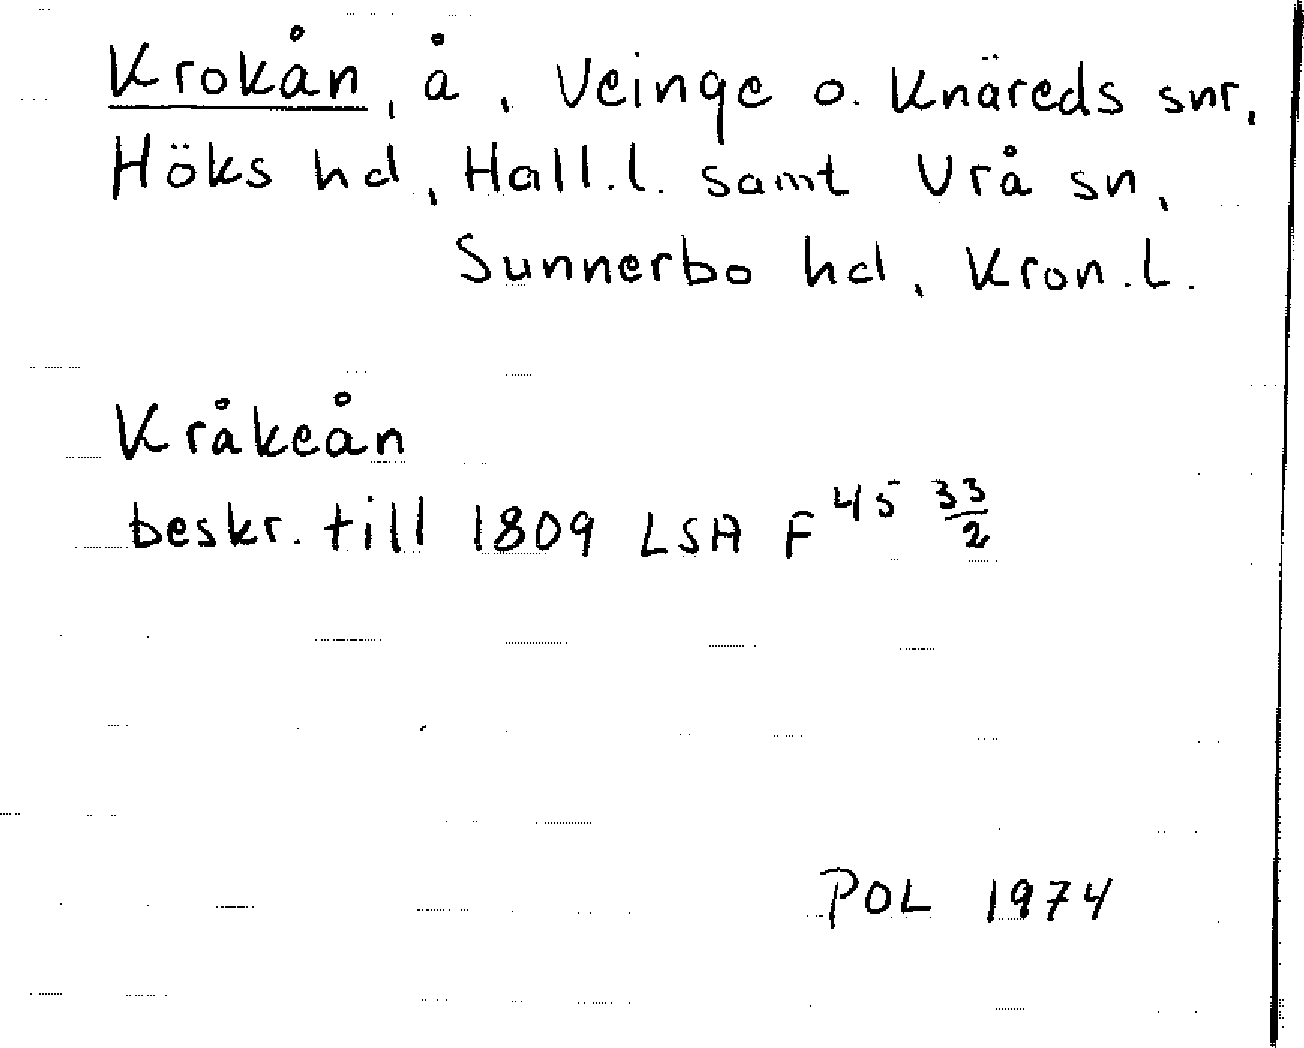 Krokån, å, Veinge o. Knäreds snr,
Höks hd, Hall.l. samt Vrå sn,
Sunnerbo hd, Kron.l.
Kråkeån
beskr. till 1809 LSA F 45 33/2
POL 1974